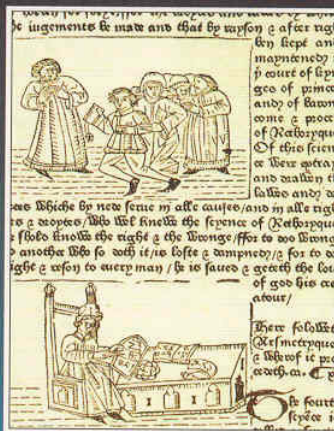 be iugements be made and that by rayson & after rig
ben kept and
mayntened
ye court of kyn
ges of prince
and of baron
come & proce
of Rethoryque
Of this scien
ce were
and drawen th
lawes and
whiche by nede serue in alle causes/and in alle righ
es & droytes/who wel knewe the scyence of Rethoryque
shold knowe the right & the wronge/ffor to doo wrong
another who so doth it/is loste & dampned/& for to do
ight & reson to euery man/he is saued & geteth the lou
of god his cre
atour/
Here foloweth
Arsmetryque
& wherof it pro
cedeth. ca.
the fourt
scyēce is